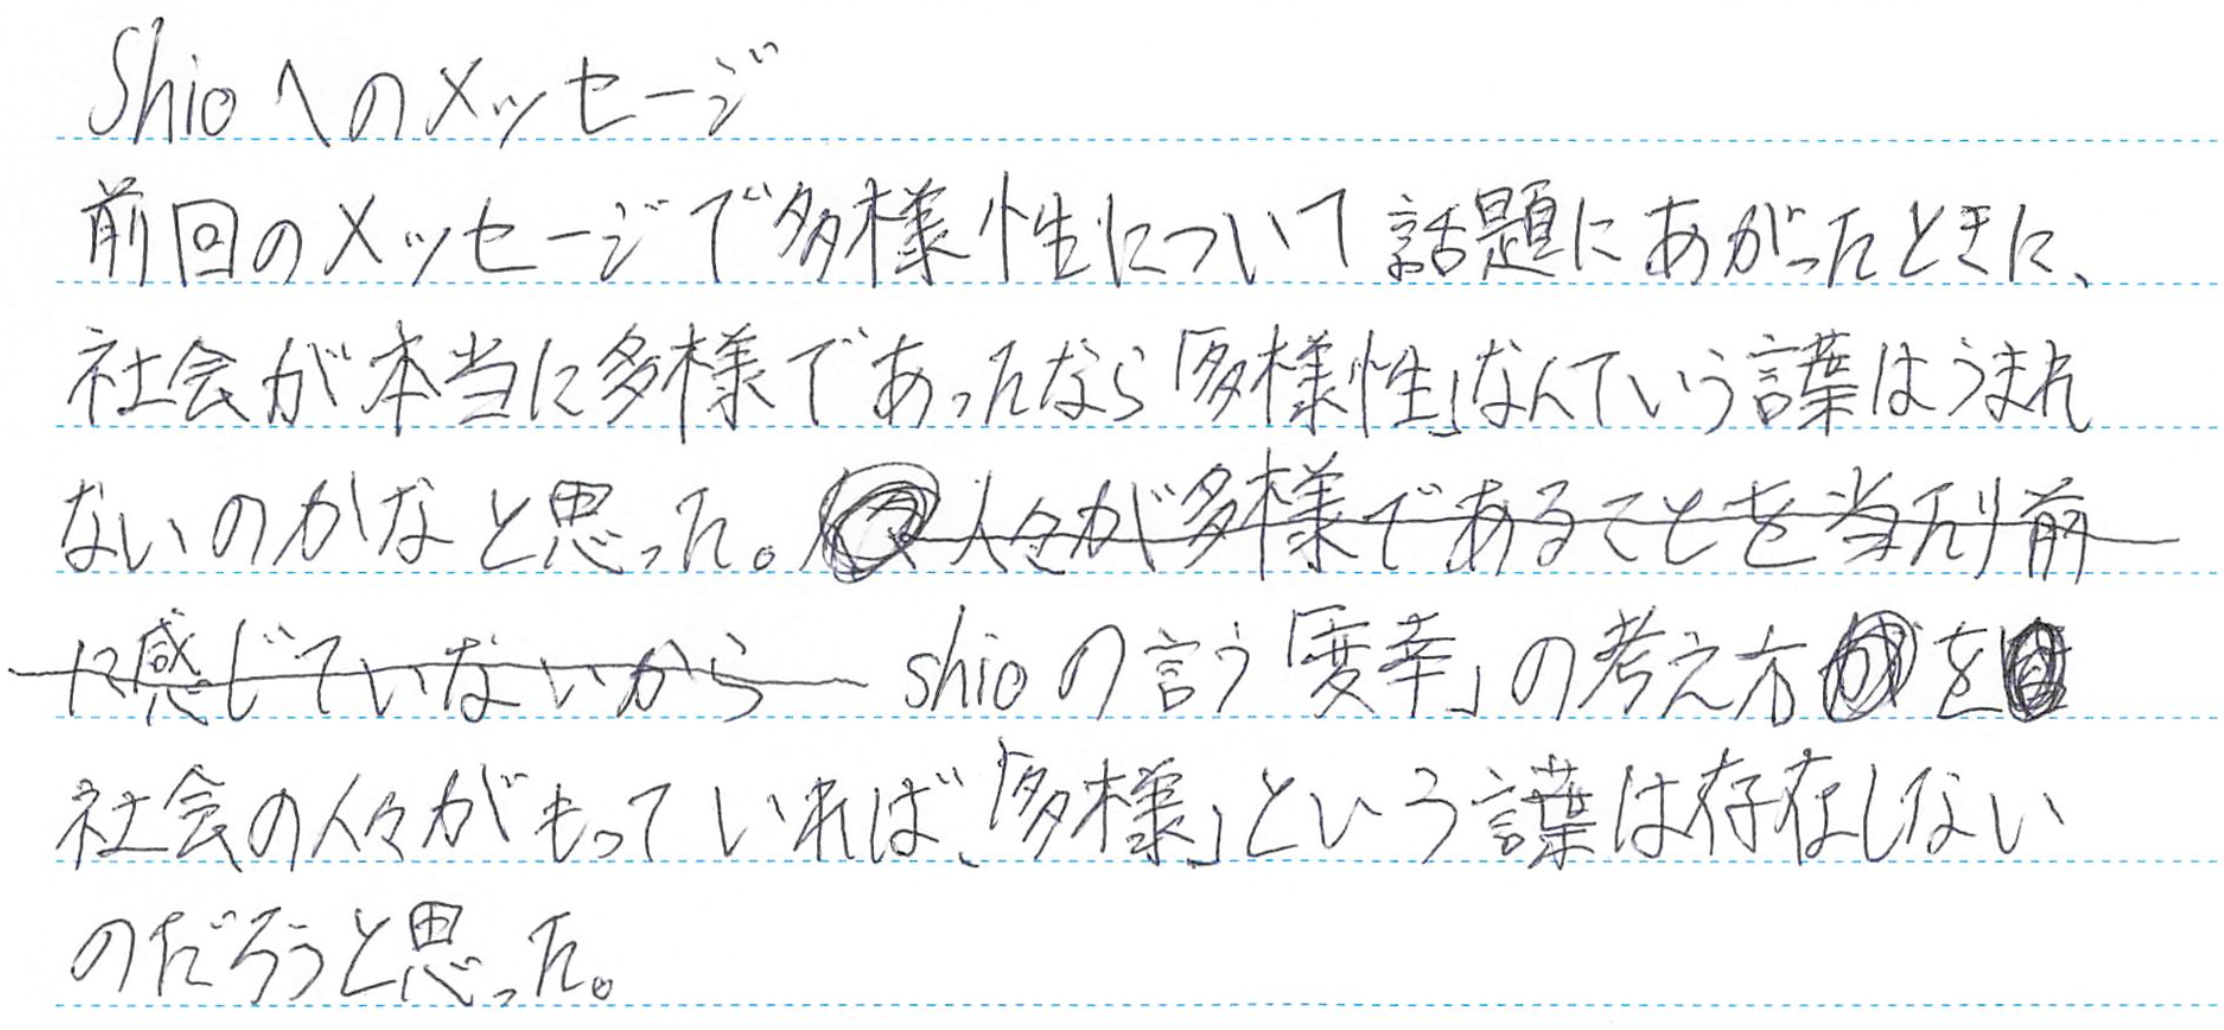 Shioへのメッセージ
前回のメッセージで多様性について話題にあがったときに、
社会が本当に多様であったなら「多様性」なんていう言葉はうまれ
ないのかなと思った。人々が多様であることを当たり前
に感じていないから shioの言う「変幸」の考え方を
社会の人々がもっていれば、「多様」という言葉は存在しない
のだろうと思った。